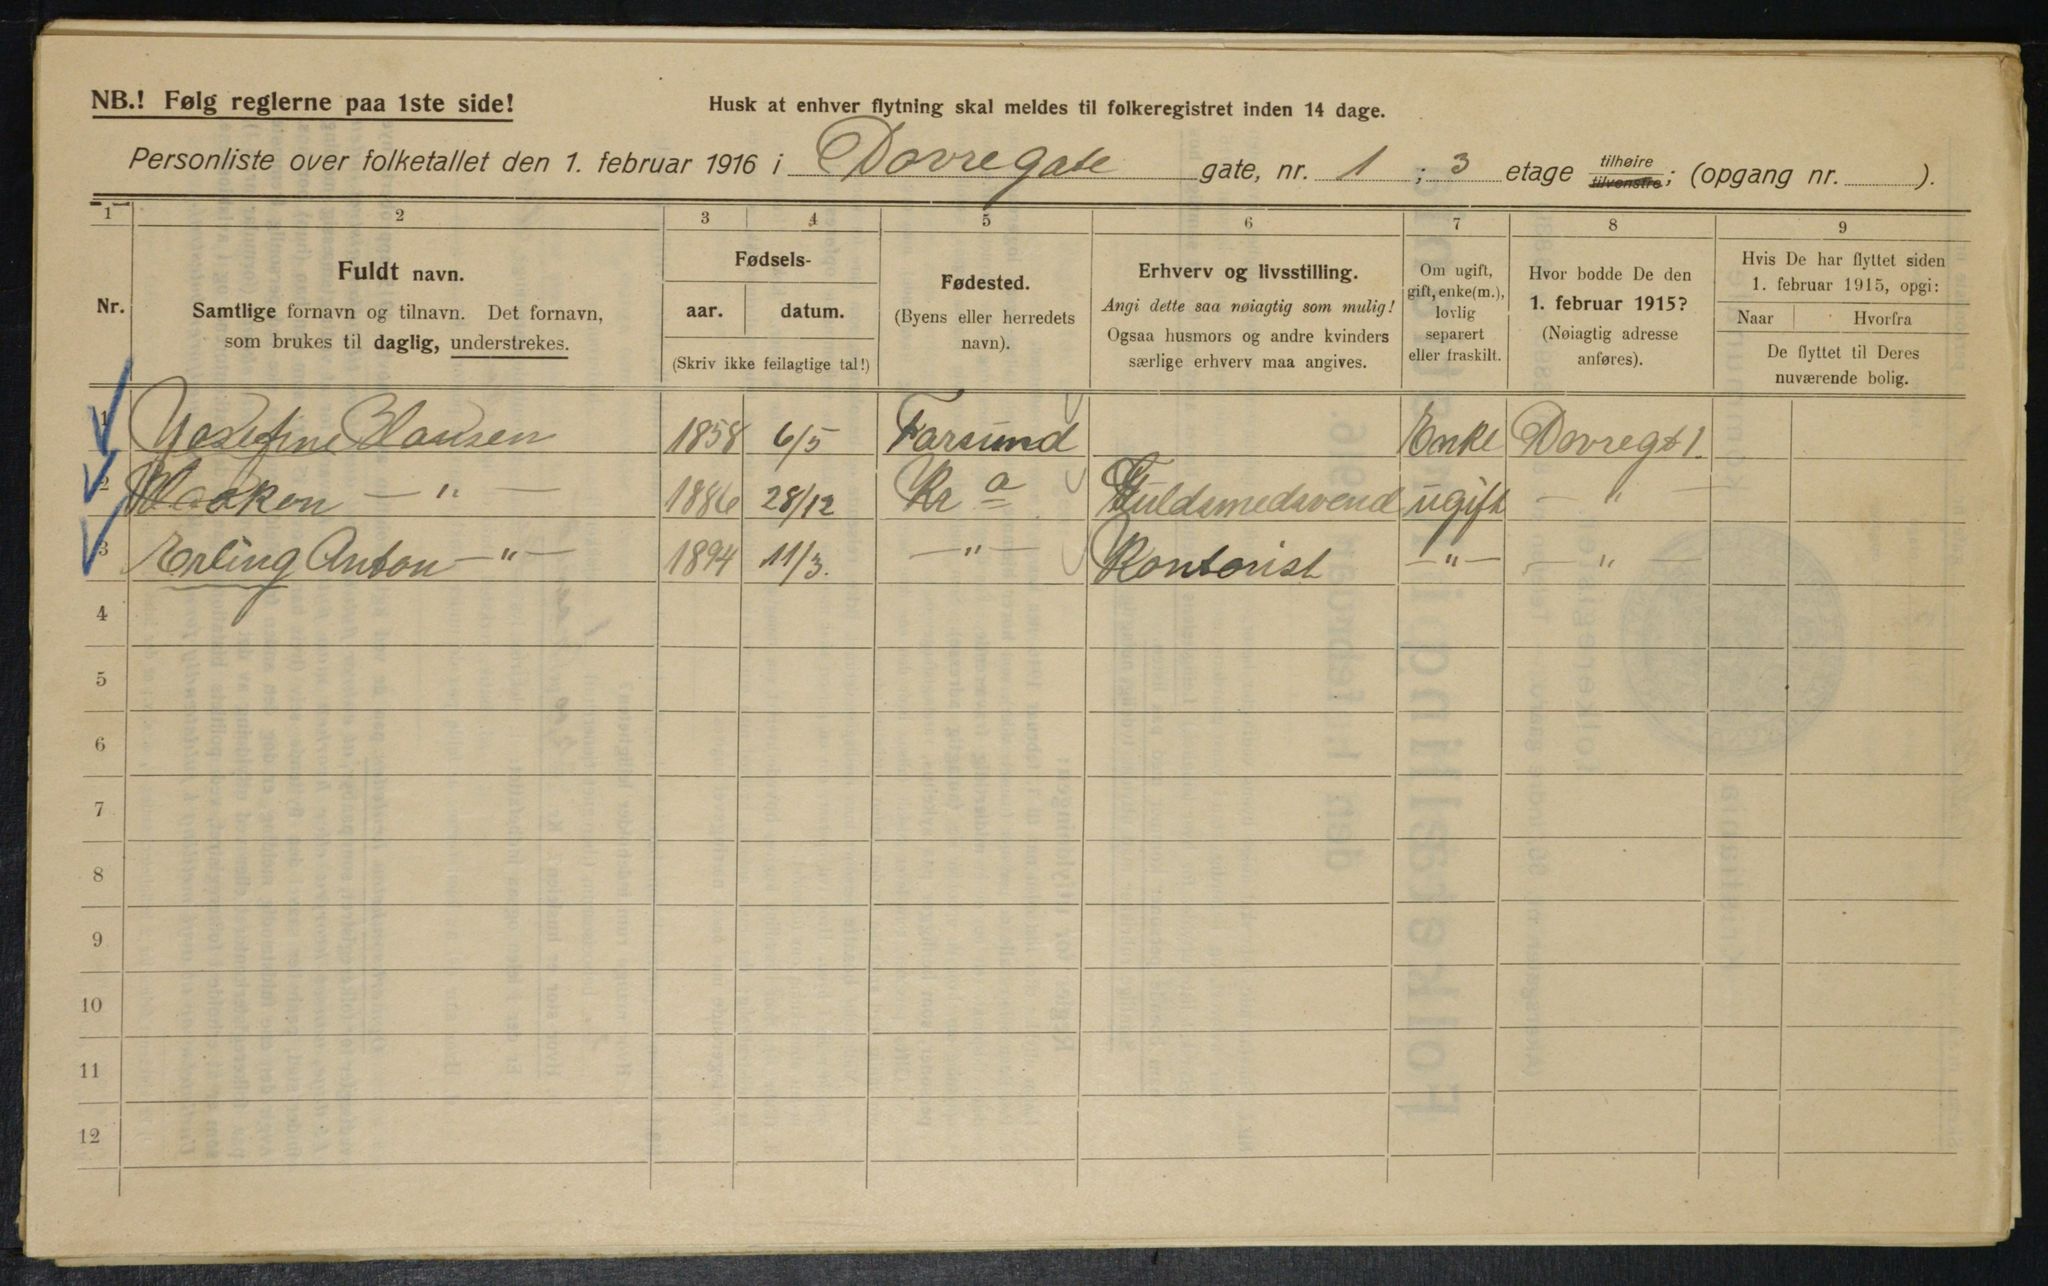 NB.! Følg reglerne paa 1ste side!
Husk at enhver flytning skal meldes til folkeregistret inden 14 dage.
Personliste over folketallet den 1. februar 1916 i Dovregate gate, nr. 1 ; 3 etage tilhøire tilvenstre; (opgang nr. ).
1 2 3 4 5 6 7 8 9
Nr.
Fuldt navn.
Samtlige fornavn og tilnavn. Det fornavn,
som brukes til daglig, understrekes.
Fødsels-
aar. datum.
(Skriv ikke feilagtige tal!)
Fødested.
(Byens eller herredets
navn).
Erhverv og livsstilling.
Angi dette saa nøiagtig som mulig!
Ogsaa husmors og andre kvinders
særlige erhverv maa angives.
Om ugift,
gift, enke(m.),
lovlig
separert
eller fraskilt.
Hvor bodde De den
1. februar 1915?
(Nøiagtig adresse
anføres).
Hvis De har flyttet siden
1. februar 1915, opgi:
Naar Hvorfra
De flyttet til Deres
nuværende bolig.
1 Josefine Hansen 1858 6/5 Farsund Enke Dovregt 1.
2 Haakon — " — 1886 28/12 Kra Guldsmedsvend ugift — " —
3 Erling Anton — " — 1894 11/3. — " — Kontorist — " — — "
4
5
6
7
8
9
10
11
12